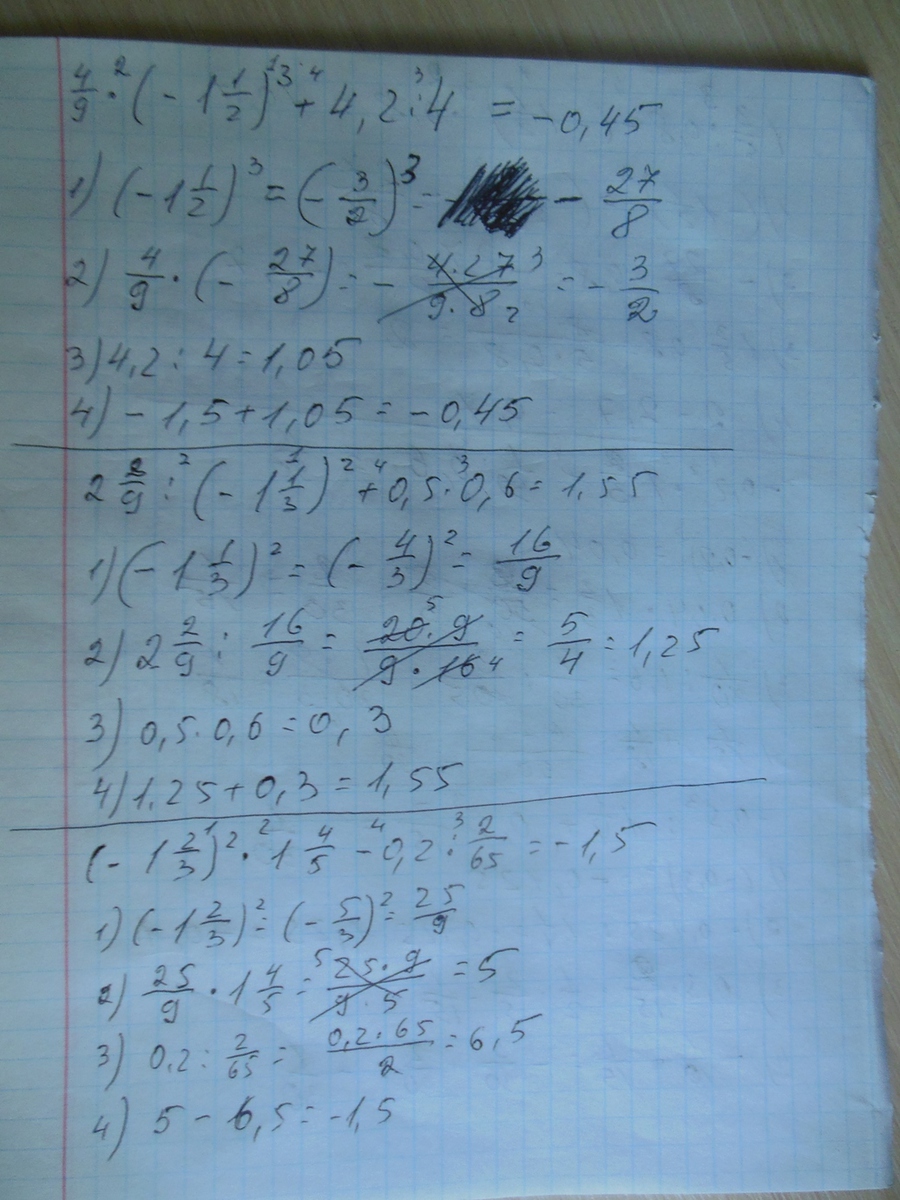 4/9 ·² (-1 1/2)¹³ +⁴ 4,2 :³ 4 = -0,45
1) (-1 1/2)³ = (-3/2)³ = - 27/8
2) 4/9 · (- 27/8) = - 4·27 3/9·8 2 = - 3/2
3) 4,2 : 4 = 1,05
4) - 1,5 + 1,05 = - 0,45
2 2/9 :² (-1 1/3)¹ ² +⁴ 0,5 ·³ 0,6 = 1,55
1) (-1 1/3)² = (- 4/3)² = 16/9
2) 2 2/9 : 16/9 = 20 5 · 9/9 · 16 4 = 5/4 = 1,25
3) 0,5 · 0,6 = 0,3
4) 1,25 + 0,3 = 1,55
(-1 2/3)¹ ² ·² 1 4/5 -⁴ 0,2 :³ 2/65 = -1,5
1) (-1 2/3)² = (- 5/3)² = 25/9
2) 25/9 · 1 4/5 = 5 25 · 9/9 · 5 = 5
3) 0,2 : 2/65 = 0,2 · 65/2 = 6,5
4) 5 - 6,5 = -1,5